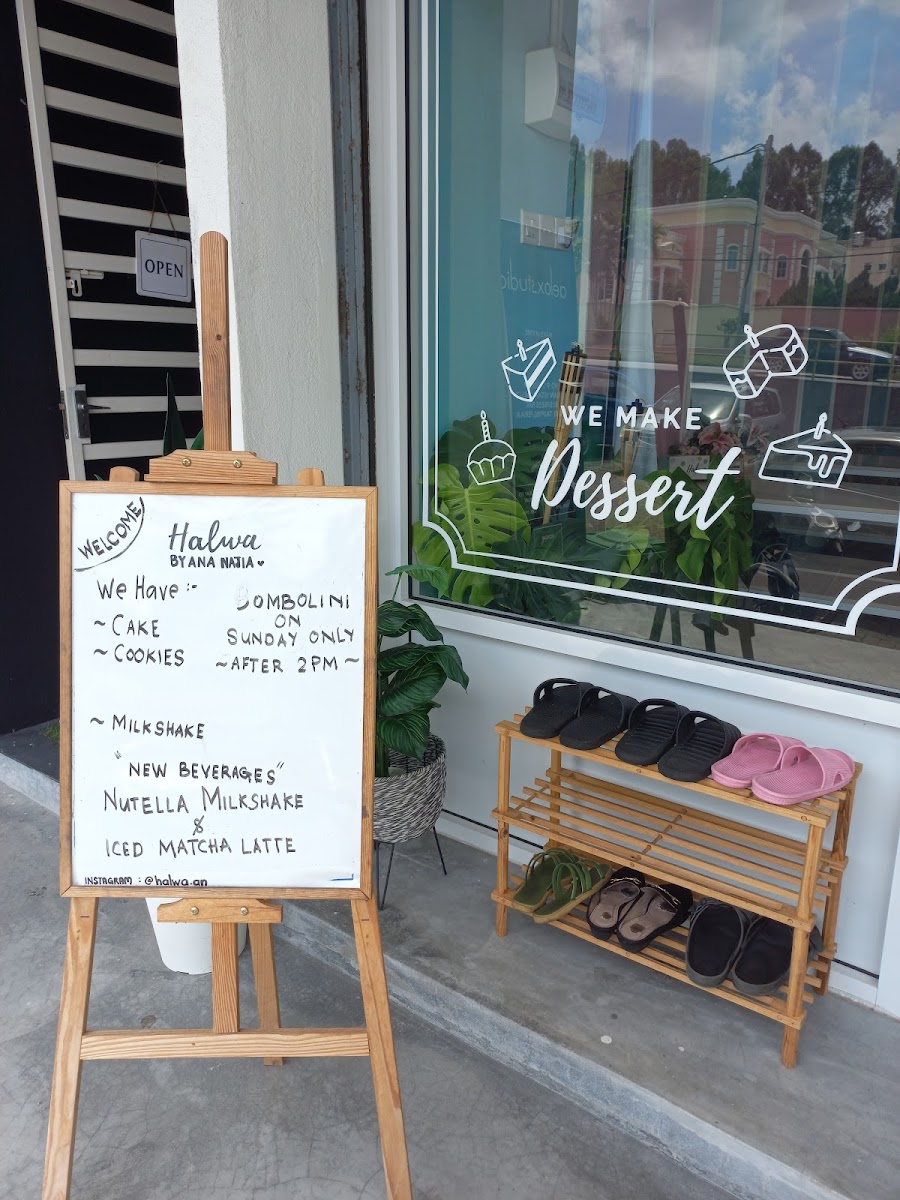 OPEN
WELCOME
Halwa
BY ANA NATIA
We Have :-
~ CAKE
~ COOKIES
BOMBOLINI
ON
SUNDAY ONLY
~ AFTER 2PM ~
~ MILKSHAKE
"NEW BEVERAGES"
NUTELLA MILKSHAKE
&
ICED MATCHA LATTE
INSTAGRAM : @halwa.an
WE MAKE
Dessert